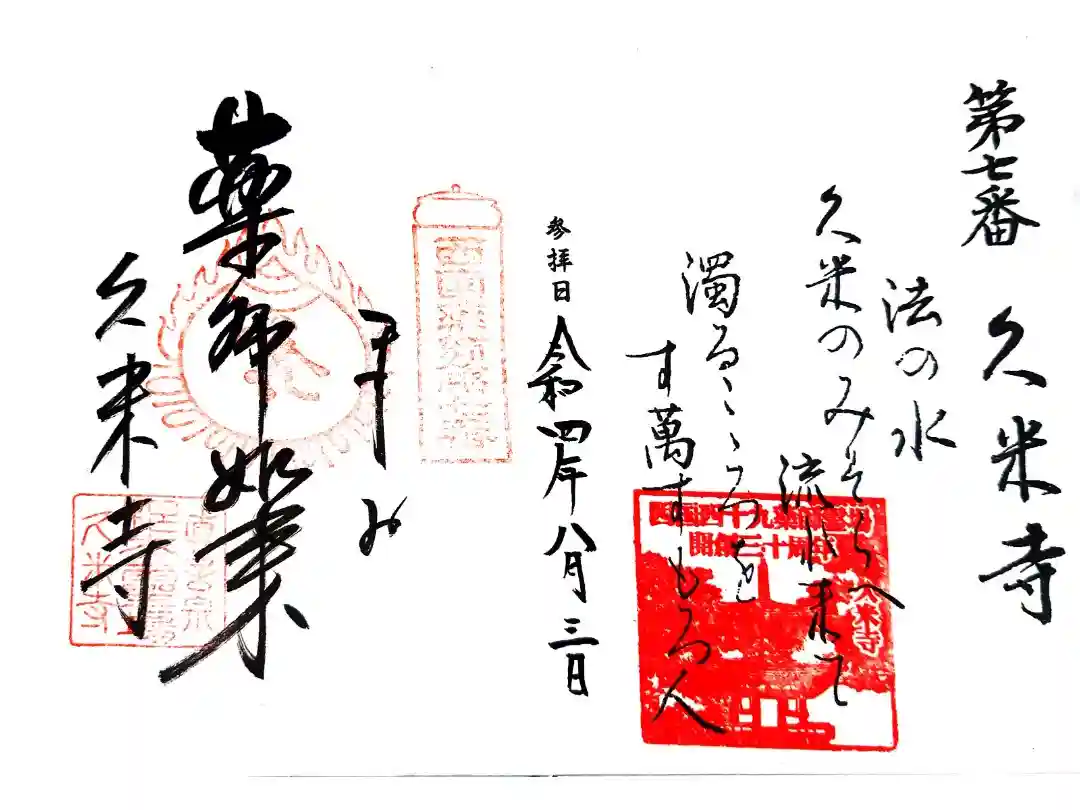 第七番 久米寺
法の水
久米のみそらへ
流れ来て
濁るゝこゝろを
す萬すもろ人
西国四十九薬師霊場
開創三十周年
久米寺
参拝日 令和四年八月三日
西国薬師霊場
奉拝
薬師如来
久米寺
久米寺